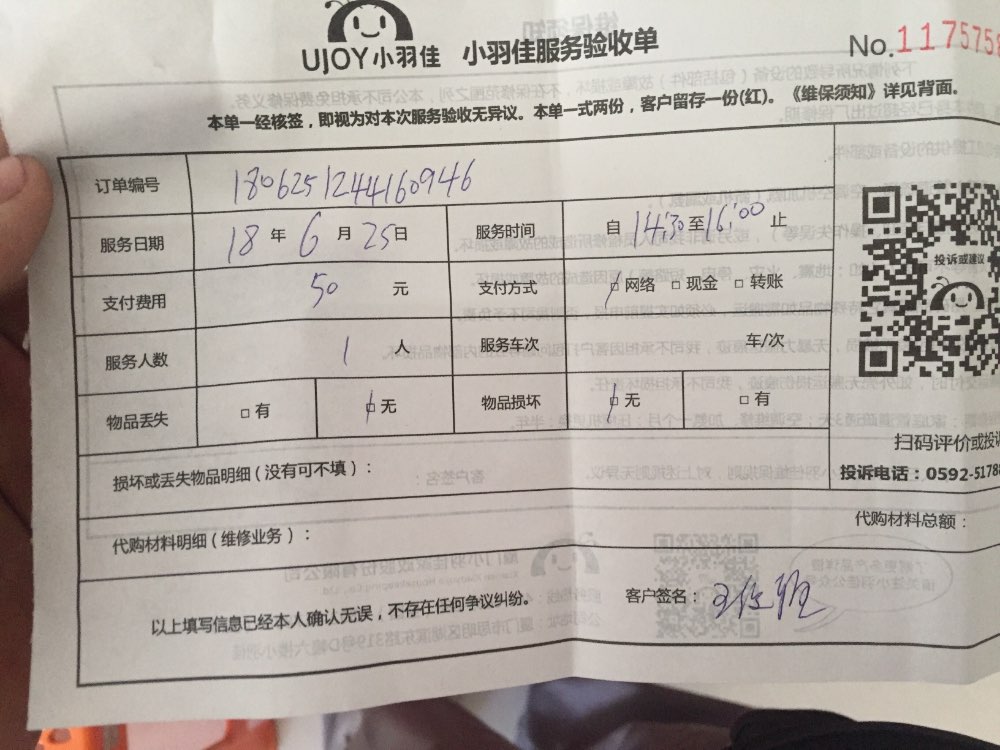 UJOY小羽佳 小羽佳服务验收单 No.117575
本单一经核签，即视为对本次服务验收无异议。本单一式两份，客户留存一份(红)。《维保须知》详见背面。
订单编号 180625124416094​6
服务日期 18 年 6 月 25 日 服务时间 自 14:30 至 16:00 止
支付费用 50 元 支付方式 □网络 □现金 □转账
服务人数 1 人 服务车次 车/次
物品丢失 □有 □无 物品损坏 □无 □有
投诉或建议
扫码评价或投诉
投诉电话：0592-5178
损坏或丢失物品明细（没有可不填）：
代购材料明细（维修业务）： 代购材料总额：
以上填写信息已经本人确认无误，不存在任何争议纠纷。 客户签名：